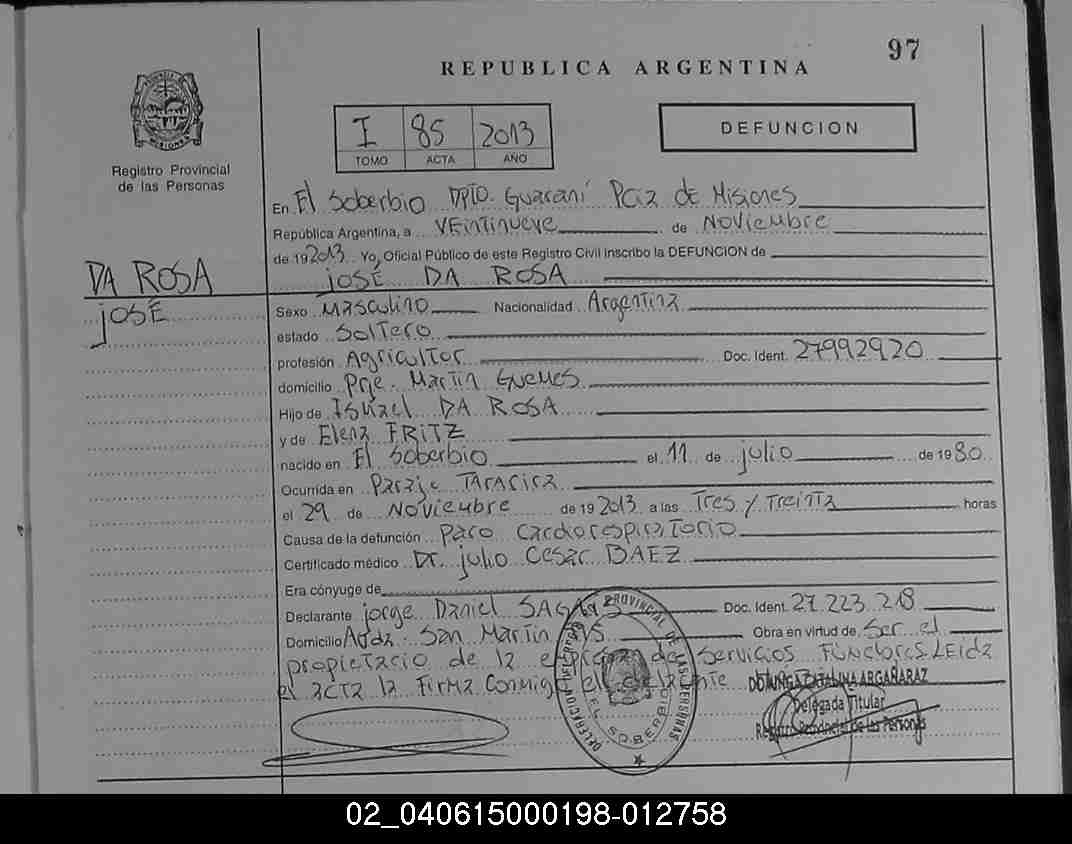 97
REPUBLICA ARGENTINA
I 85 2013
TOMO ACTA AÑO
DEFUNCION
PROVINCIA DE MISIONES
Registro Provincial
de las Personas
En El Soberbio DPTO. Guaraní Pcia de Misiones
República Argentina, a VEintinueve de Noviembre
de 19 2013 Yo, Oficial Público de este Registro Civil inscribo la DEFUNCION de
DA ROSA
JOSÉ
JOSÉ DA ROSA
Sexo Masculino Nacionalidad Argentina
estado Soltero
profesión Agricultor Doc. Ident. 27992920
domicilio Prje. Martin Guemes
Hijo de Ismael DA ROSA
y de Elena FRITZ
nacido en El Soberbio el 11 de julio de 1980
Ocurrida en Paraje Tararira
el 29 de Noviembre de 19 2013 a las Tres y Treinta horas
Causa de la defunción Paro cardiorespiratorio
Certificado médico Dr. julio Cesar BAEZ
Era cónyuge de
Declarante jorge Daniel Doc. Ident. 27.223.218
Domicilio Avda. San Martin Obra en virtud de Ser el
propietario de la empresa de Servicios Funebres. LEida
el acta la Firma Conmigo el declarante
DELEGACION DEL REGISTRO PROVINCIAL DE LAS PERSONAS
EL SOBERBIO
DOMINGA CATALINA ARGAÑARAZ
Delegada Titular
Registro Provincial de las Personas
02_040615000198-012758